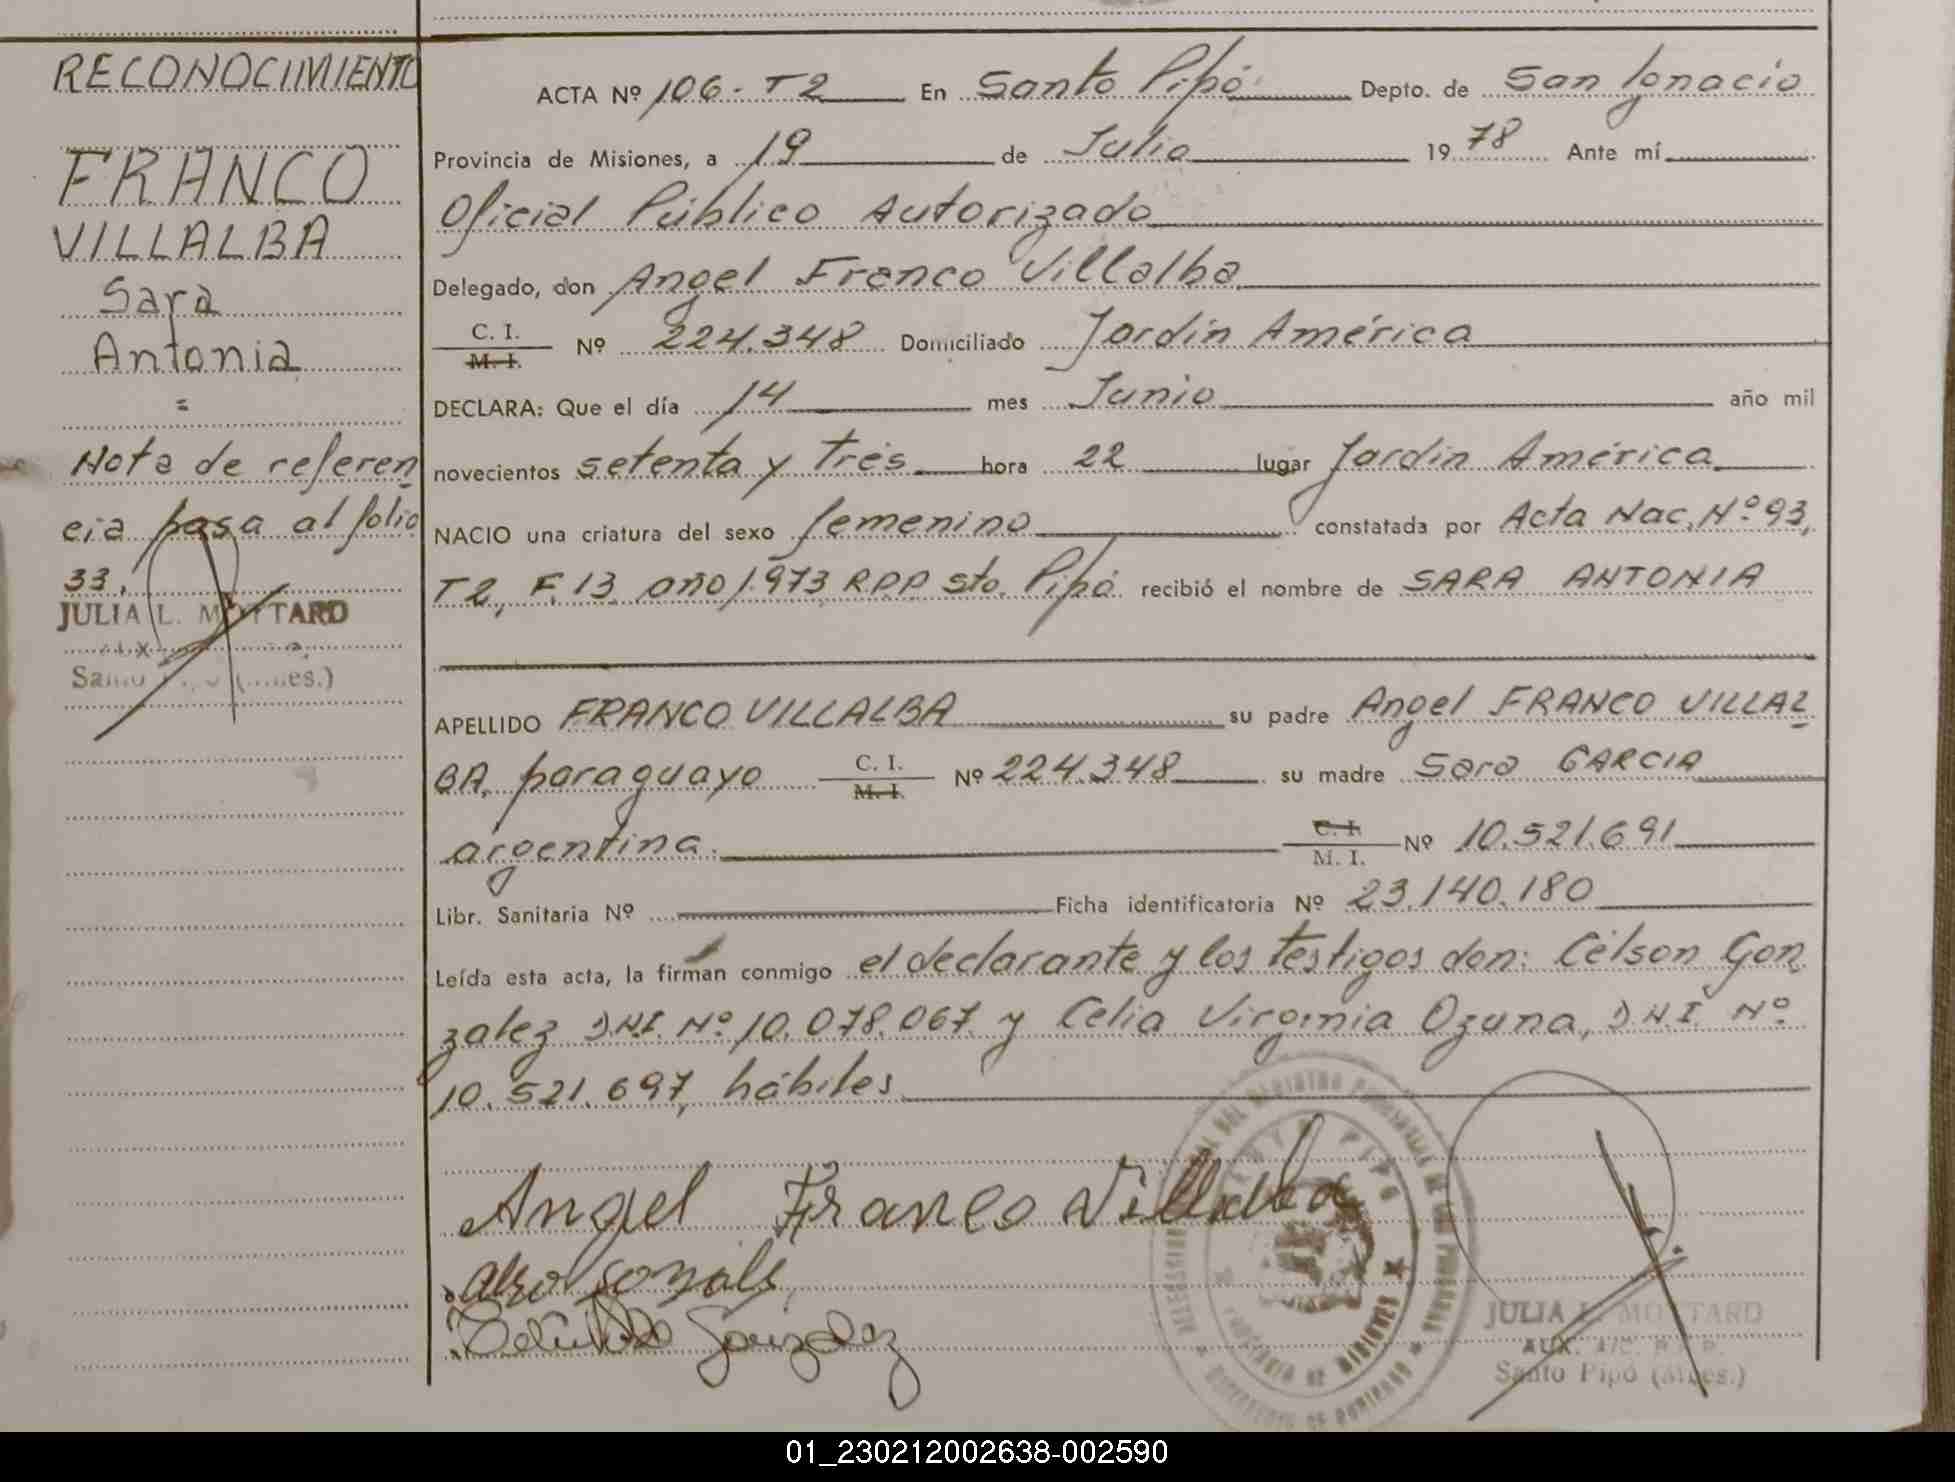 RECONOCIMIENTO
FRANCO
VILLALBA
Sara
Antonia
=
Nota de referen
cia pasa al folio
33.
JULIA L. MOTTARD
Santo
ACTA Nº 106-T2 En Santo Pipó Depto. de San Ignacio
Provincia de Misiones, a 19 de Julio 1978 Ante mí
Oficial Público Autorizado
Delegado, don Angel Franco Villalba
C. I.
M. I.
Nº 224.348 Domiciliado Jardín América
DECLARA: Que el día 14 mes Junio año mil
novecientos setenta y tres hora 22 lugar Jardín América
NACIO una criatura del sexo femenino constatada por Acta Nac. Nº 93,
T2, F. 13 año 1.973 RPP Sto. Pipó recibió el nombre de SARA ANTONIA
APELLIDO FRANCO VILLALBA su padre Angel FRANCO VILLAL
BA, paraguayo C. I. M. I. Nº 224.348 su madre Sara GARCIA
argentina. C. I. M. I. Nº 10.521.691
Libr. Sanitaria Nº Ficha identificatoria Nº 23.140.180
Leída esta acta, la firman conmigo el declarante y los testigos don: Célson Gon
zalez D.N.I. Nº 10.078.067 y Celia Virginia Ozuna, D.N.I. Nº
10.521.697, hábiles
Angel Franco Villalba
Gonzalez
SANTO PIPO
PROVINCIA DE MISIONES
JULIA L. MOTTARD
AUX. A/C. R.P.P.
Santo Pipó (Mnes.)
01_230212002638-002590